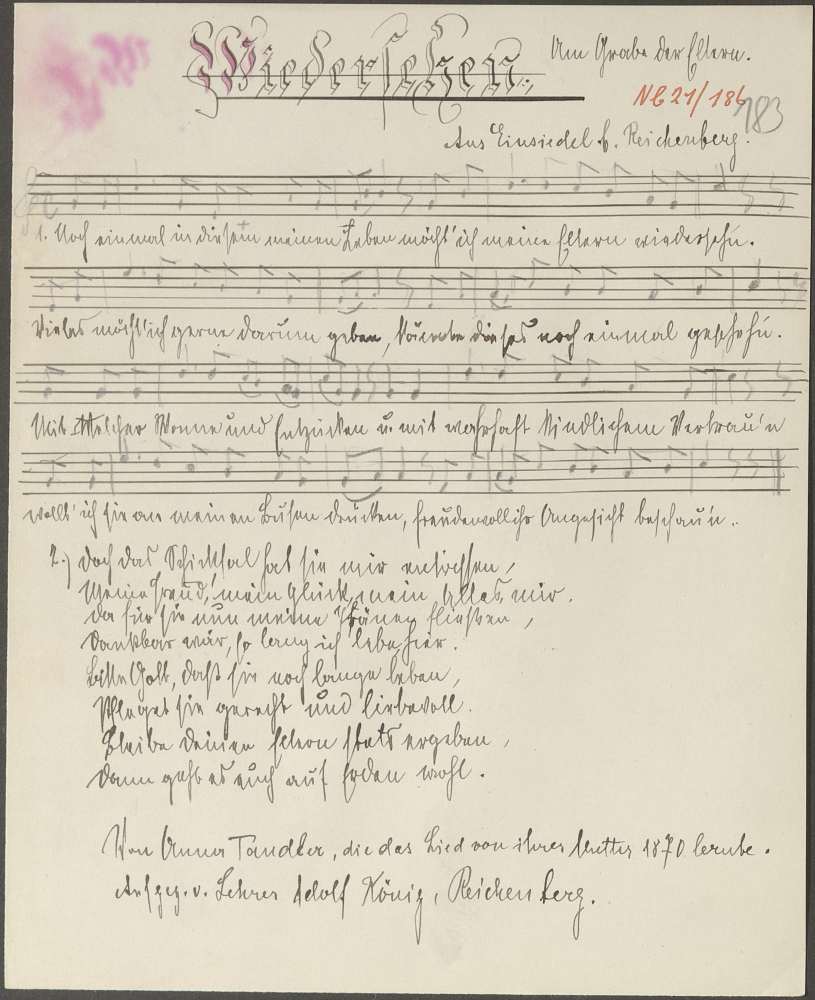 Wiedersehen.
Am Grabe der Eltern.
NB 21/186
183
Aus Einsiedel b. Reichenberg.
1. Noch einmal in diesem meinen Leben möcht' ich meine Eltern wiedersehn.
Vieles möcht' ich gerne darum geben, könnte dieses noch einmal geschehn.
Mit welcher Wonne und Entzücken u. mit wahrhaft kindlichem Vertrau'n
wollt' ich sie an meinen Busen drücken, freudenvoll ihr Angesicht beschau'n.
2.) Doch das Schicksal hat sie mir entrissen,
Meine Freud', mein Glück, mein Alles mir.
Da für sie nun meine Tränen fließen,
Dankbar wär, so lang ich lebe hier.
Bitte Gott, daß sie noch lange leben,
Pfleget sie gerecht und liebevoll.
Bleibe deinen Eltern stets ergeben,
Dann geht es euch auf Erden wohl.
Von Anna Tandler, die das Lied von ihrer Mutter 1870 lernte.
Aufgez. v. Lehrer Adolf König, Reichenberg.